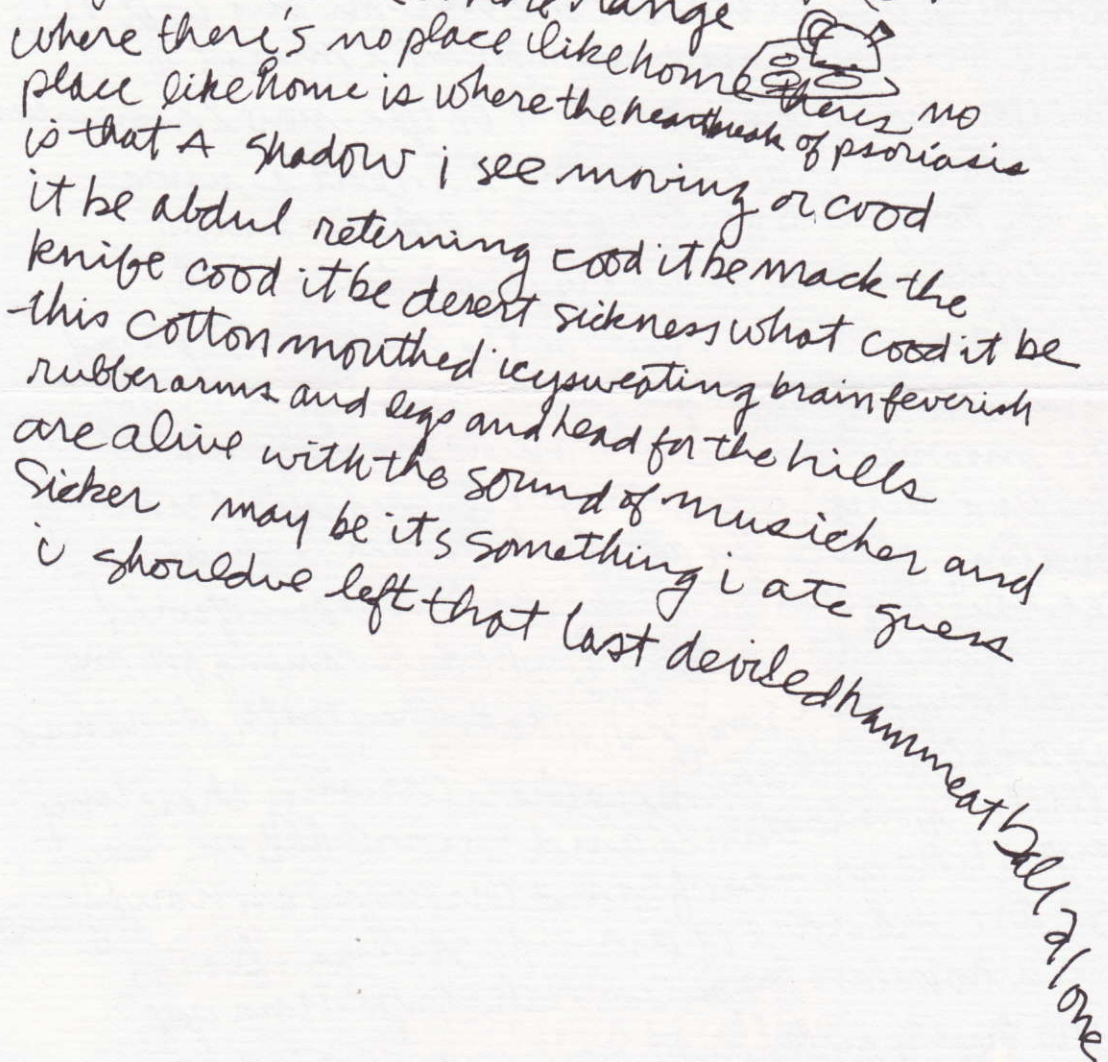 range
where there's no place like home theres no
place like home is where the heartbreak of psoriasis
is that A shadow i see moving or cood
it be abdul reterning cood it be mack the
knife cood it be desert sickness what cood it be
this cotton mouthed icysweating brain feverish
rubber arms and legs and head for the hills
are alive with the sound of musicker and
Sicker may be its something i ate guess
i shouldve left that last deviled ham meatball alone